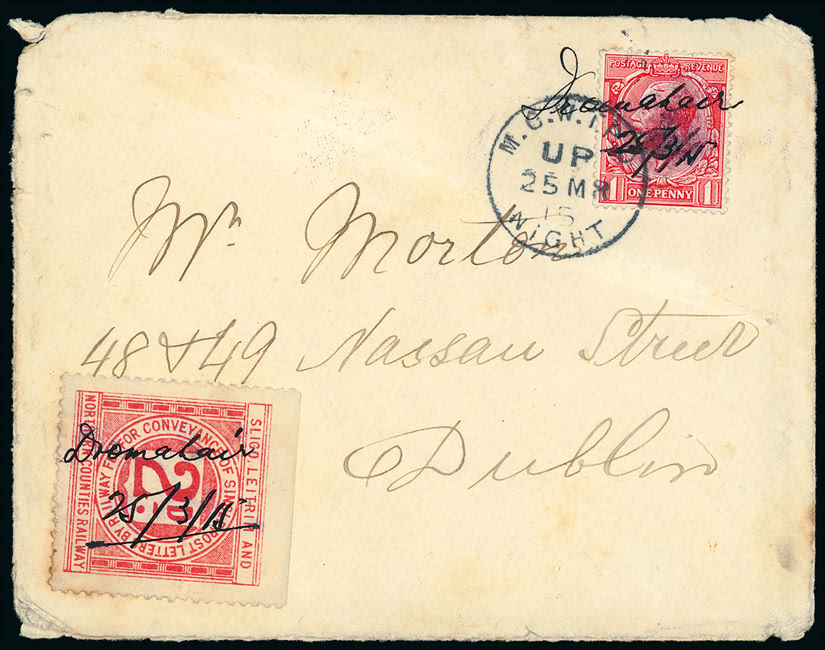 POSTAGE REVENUE
Dromahair
25/3/15
1 ONE PENNY 1
M.G.W.
UP
25 MR
15
NIGHT
Mr Morton
48 & 49 Nassau Street
Dublin
SLIGO LEITRIM AND
NORTHERN COUNTIES RAILWAY
FEE FOR CONVEYANCE OF SINGLE POST LETTER BY RAILWAY
2D
Dromahair
25/3/15